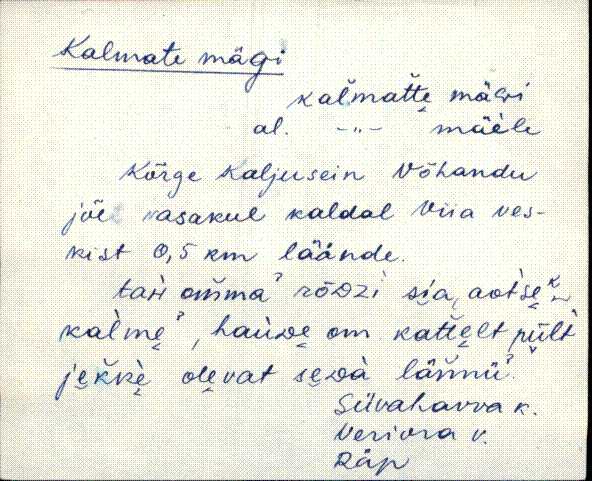 Kalmate mägi
kalmatte mäGi
al. –„– mäèle
Kõrge kaljusein Võhandu
jõe vasakul kaldal Viia ves-
kist 0,5 km läände.
omma' rõDzi sia,
kalme', hauDe om kattelt pült
jekkè olevat seDà lännü'.
Süvahavva k.
Veriora v.
Räp